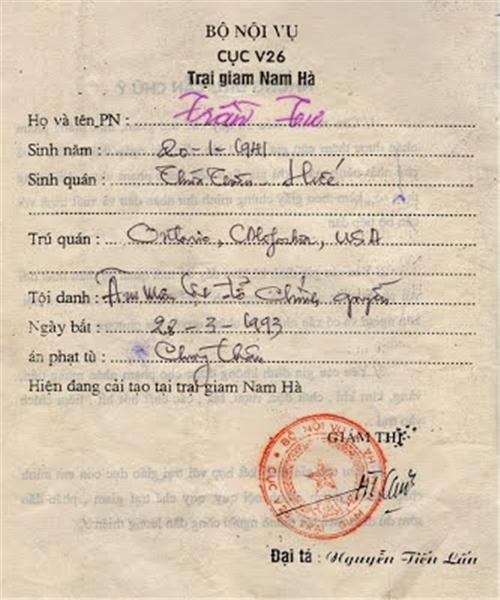 BỘ NỘI VỤ
CỤC V26
Trại giam Nam Hà
Họ và tên PN : Trần Tư
Sinh năm : 20-1-1941
Sinh quán : Thừa Thiên - Huế
Trú quán : Ontario, California, USA
Tội danh : Âm mưu lật đổ chính quyền
Ngày bắt : 28-3-1993
án phạt tù : Chung thân
Hiện đang cải tạo tại trại giam Nam Hà
GIÁM THỊ
BỘ NỘI VỤ
Đại tá : Nguyễn Tiến Lẩn